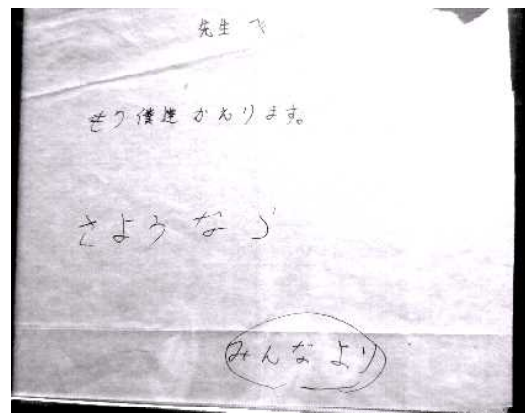 先生へ
もう僕達かえります。
さようなら
みんなより